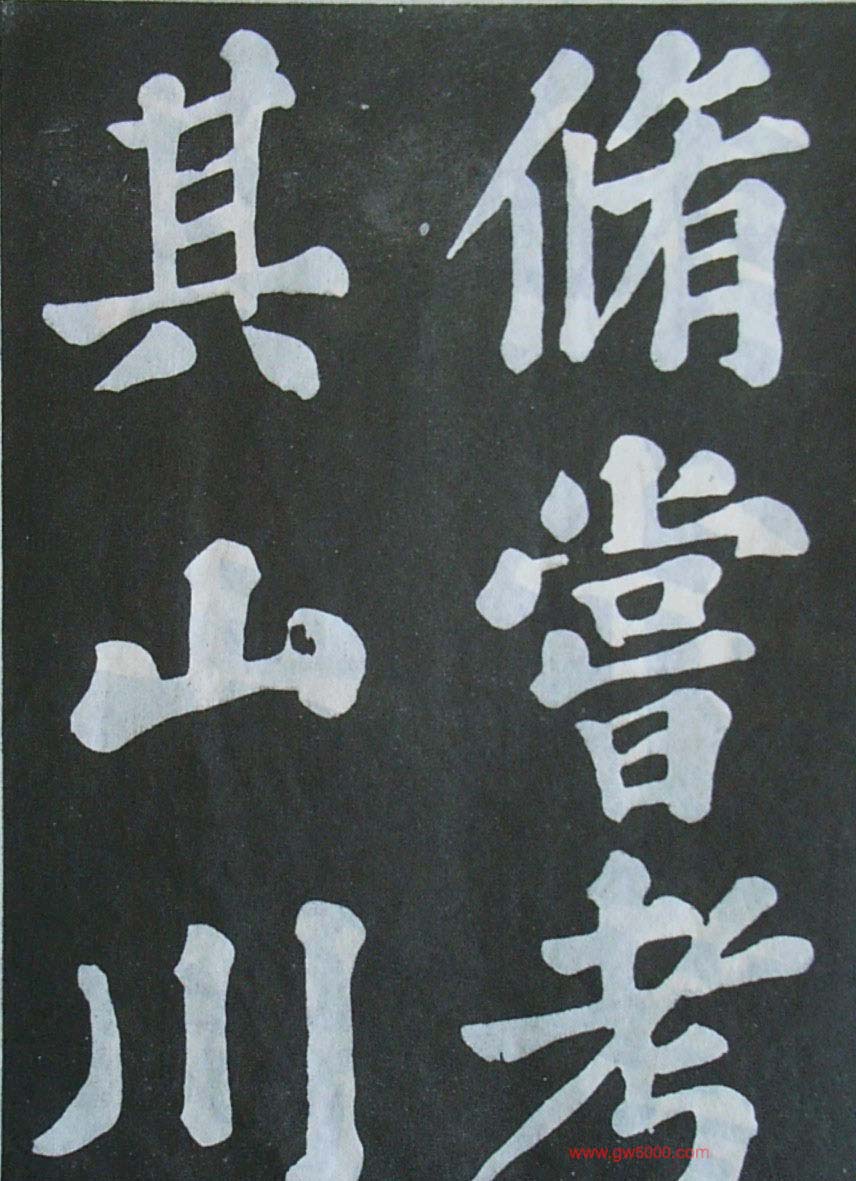 脩嘗考
其山川
www.gw6000.com